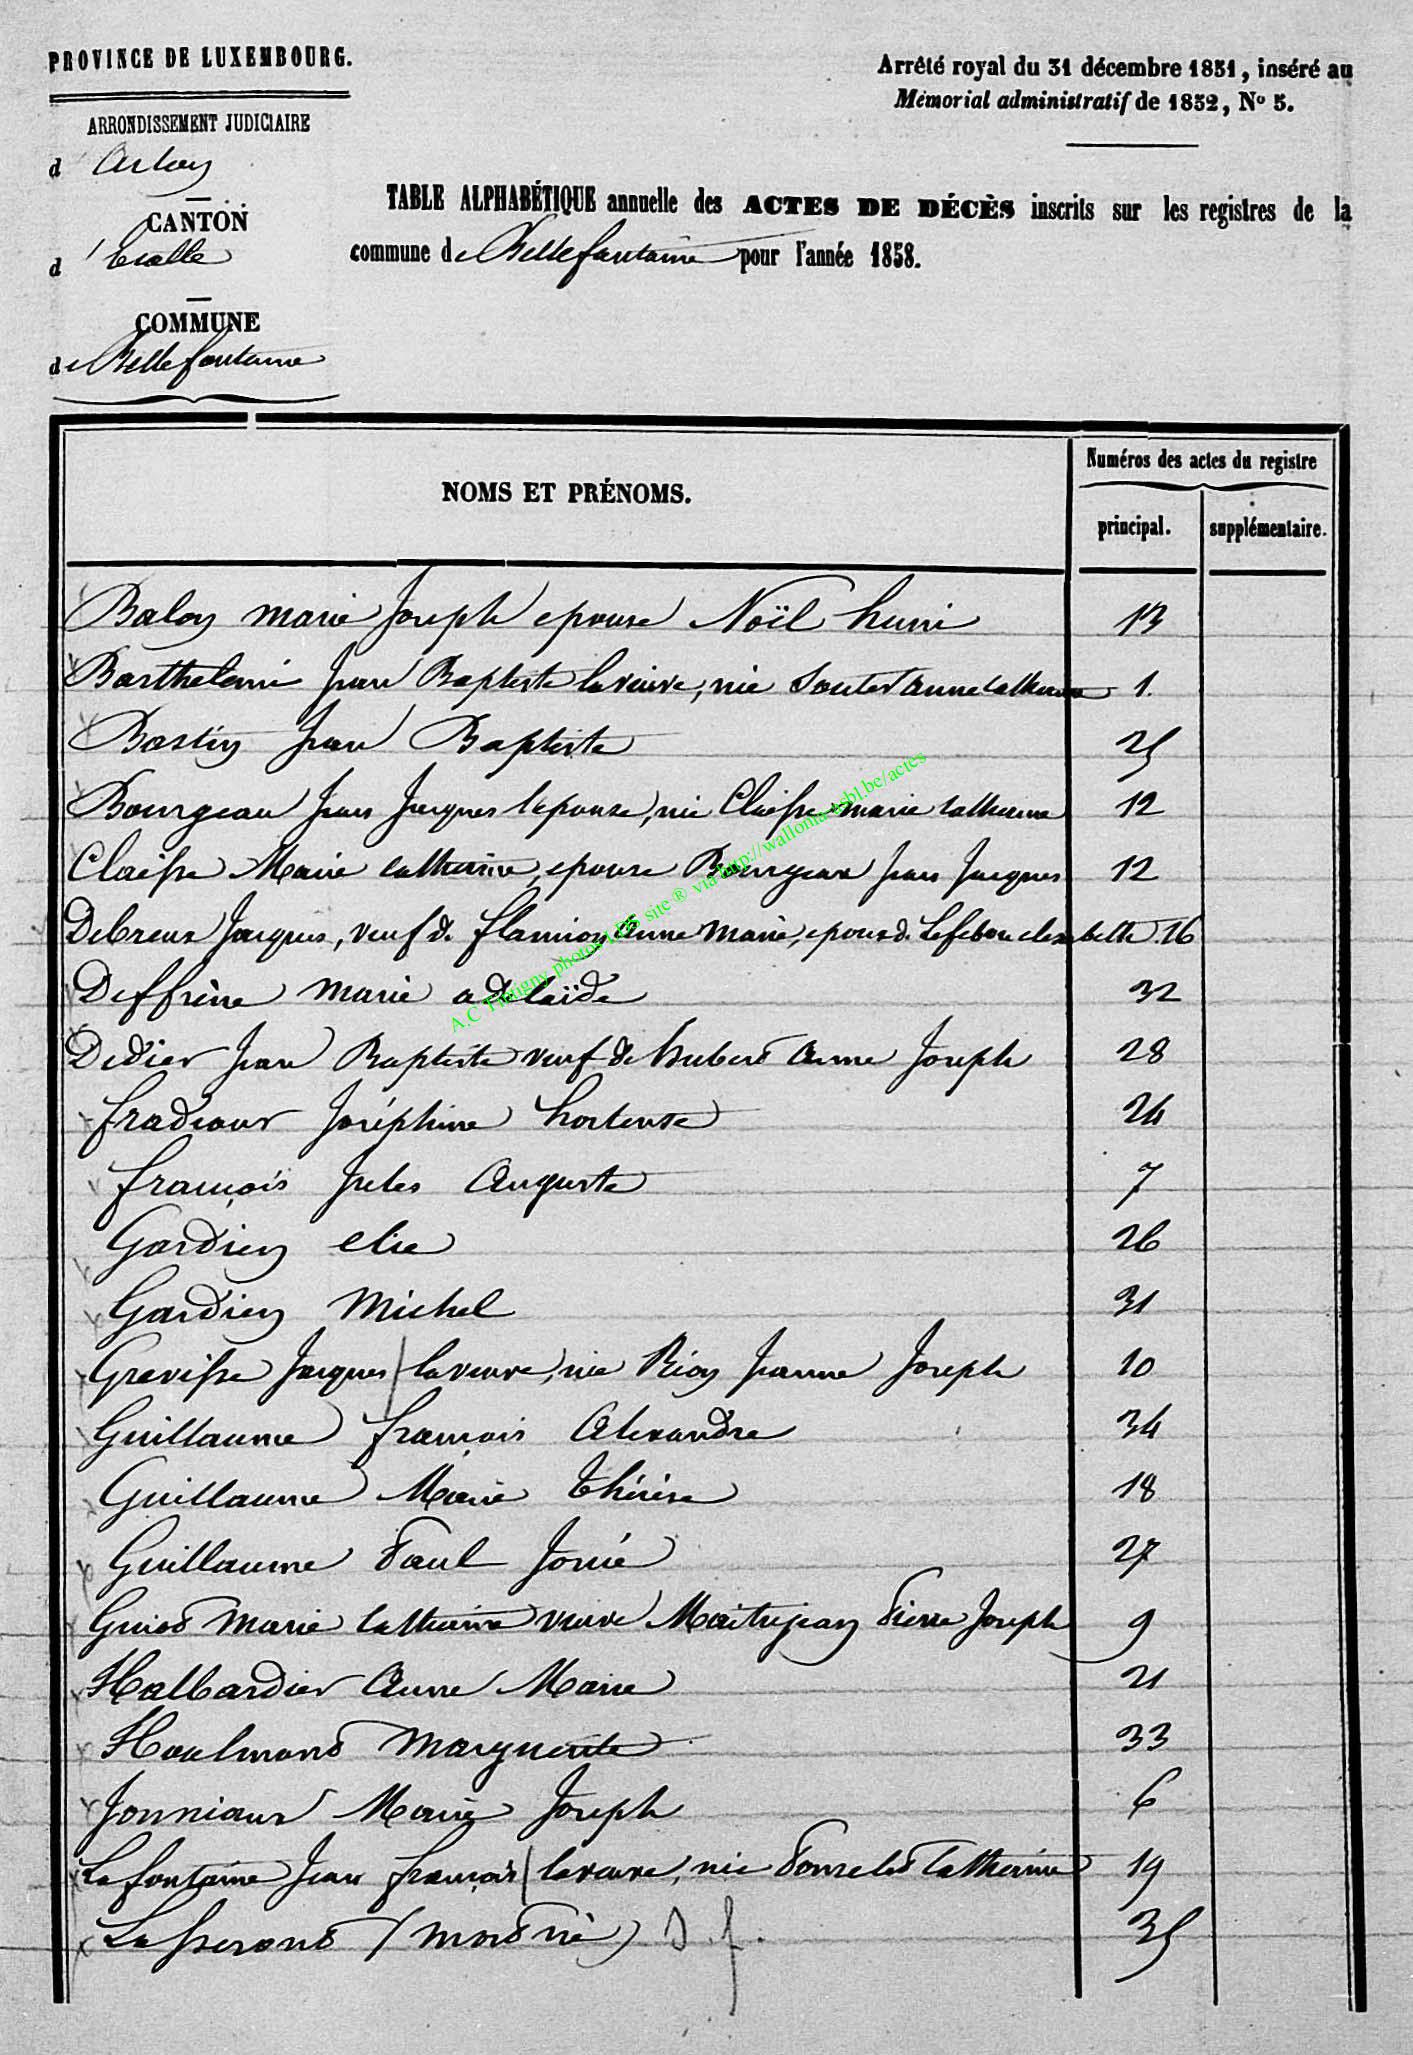 PROVINCE DE LUXEMBOURG.
Arrêté royal du 31 décembre 1851, inséré au
Mémorial administratif de 1852, No 5.
ARRONDISSEMENT JUDICIAIRE
d'Arlon
CANTON
d'Etalle
COMMUNE
de Bellefontaine
TABLE ALPHABÉTIQUE annuelle des ACTES DE DÉCÈS inscrits sur les registres de la
commune de Bellefontaine pour l'année 1858.
NOMS ET PRÉNOMS.
Numéros des actes du registre
principal. supplémentaire.
Balon marie Joseph epouse Noël henri 13
Barthelemi Jean Baptiste la veuve, née Souter anne catherine 1.
Bastin Jean Baptiste 25
Bourgeau Jean Jacques l'epouse, née Claisse marie catherine 12
Claisse Marie catherine, epouse Bourgeau Jean Jacques 12
Debreux Jacques, veuf d. flamion Anne marie, epoux d. Lefebvre elisabette 16
Deffrène marie adelaïde 32
Didier Jean Baptiste veuf de hubert anne Joseph 28
fradcour Joséphine hortense 24
françois Jules Auguste 7
Gardien elie 26
Gardien Michel 31
Grevisse Jacques / la veuve, née Rion Jeanne Joseph 10
Guillaume françois Alexandre 34
Guillaume Marie thérèse 18
Guillaume Paul Josué 27
Guiot Marie catherine veuve Maitrejean Pierre Joseph 9
Halbardier Anne Marie 21
Houlmont Marguerite 33
Jonniaux Marie Joseph 6
Lafontaine Jean françois / la veuve, née Poncelet Catherine 19
Lasseront (mort né) d. f. 35
A.C Tintigny photos LDS site ® via http://wallonia-asbl.be/actes